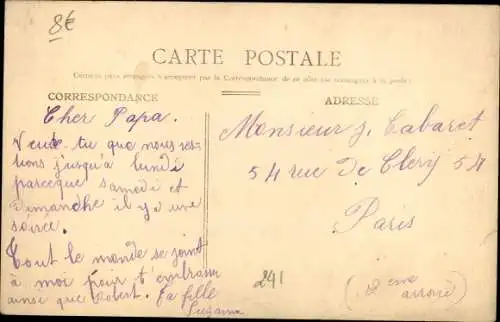 8€
CARTE POSTALE
CORRESPONDANCE
Cher Papa.
Veux tu que nous res-
tions jusqu'à lundi
parceque samedi et
dimanche il y a une
soirée.
Tout le monde se joint
à moi pour t'embrasser
ainsi que Robert. Ta fille
Suzanne
ADRESSE
Monsieur J. Cabaret
54 rue de Cléry 54
Paris
(2eme
arrond)
241